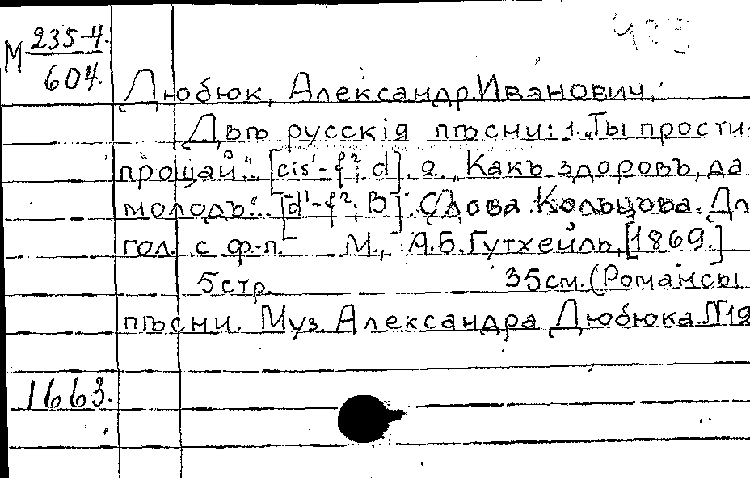 М 235-4
604
Дюбюк, Александр Иванович.
Двѣ русскія пѣсни: 1. „Ты прости-
прощай". [cis¹-f², d]. 2. „Какъ здоровъ, да
молодъ". [d¹-f², B]. Слова Кольцова. Дл
гол. с ф-п. М., А.Б. Гутхейль, [1869.]
5 стр. 35 см. (Романсы
пѣсни. Муз. Александра Дюбюка №19
1663.